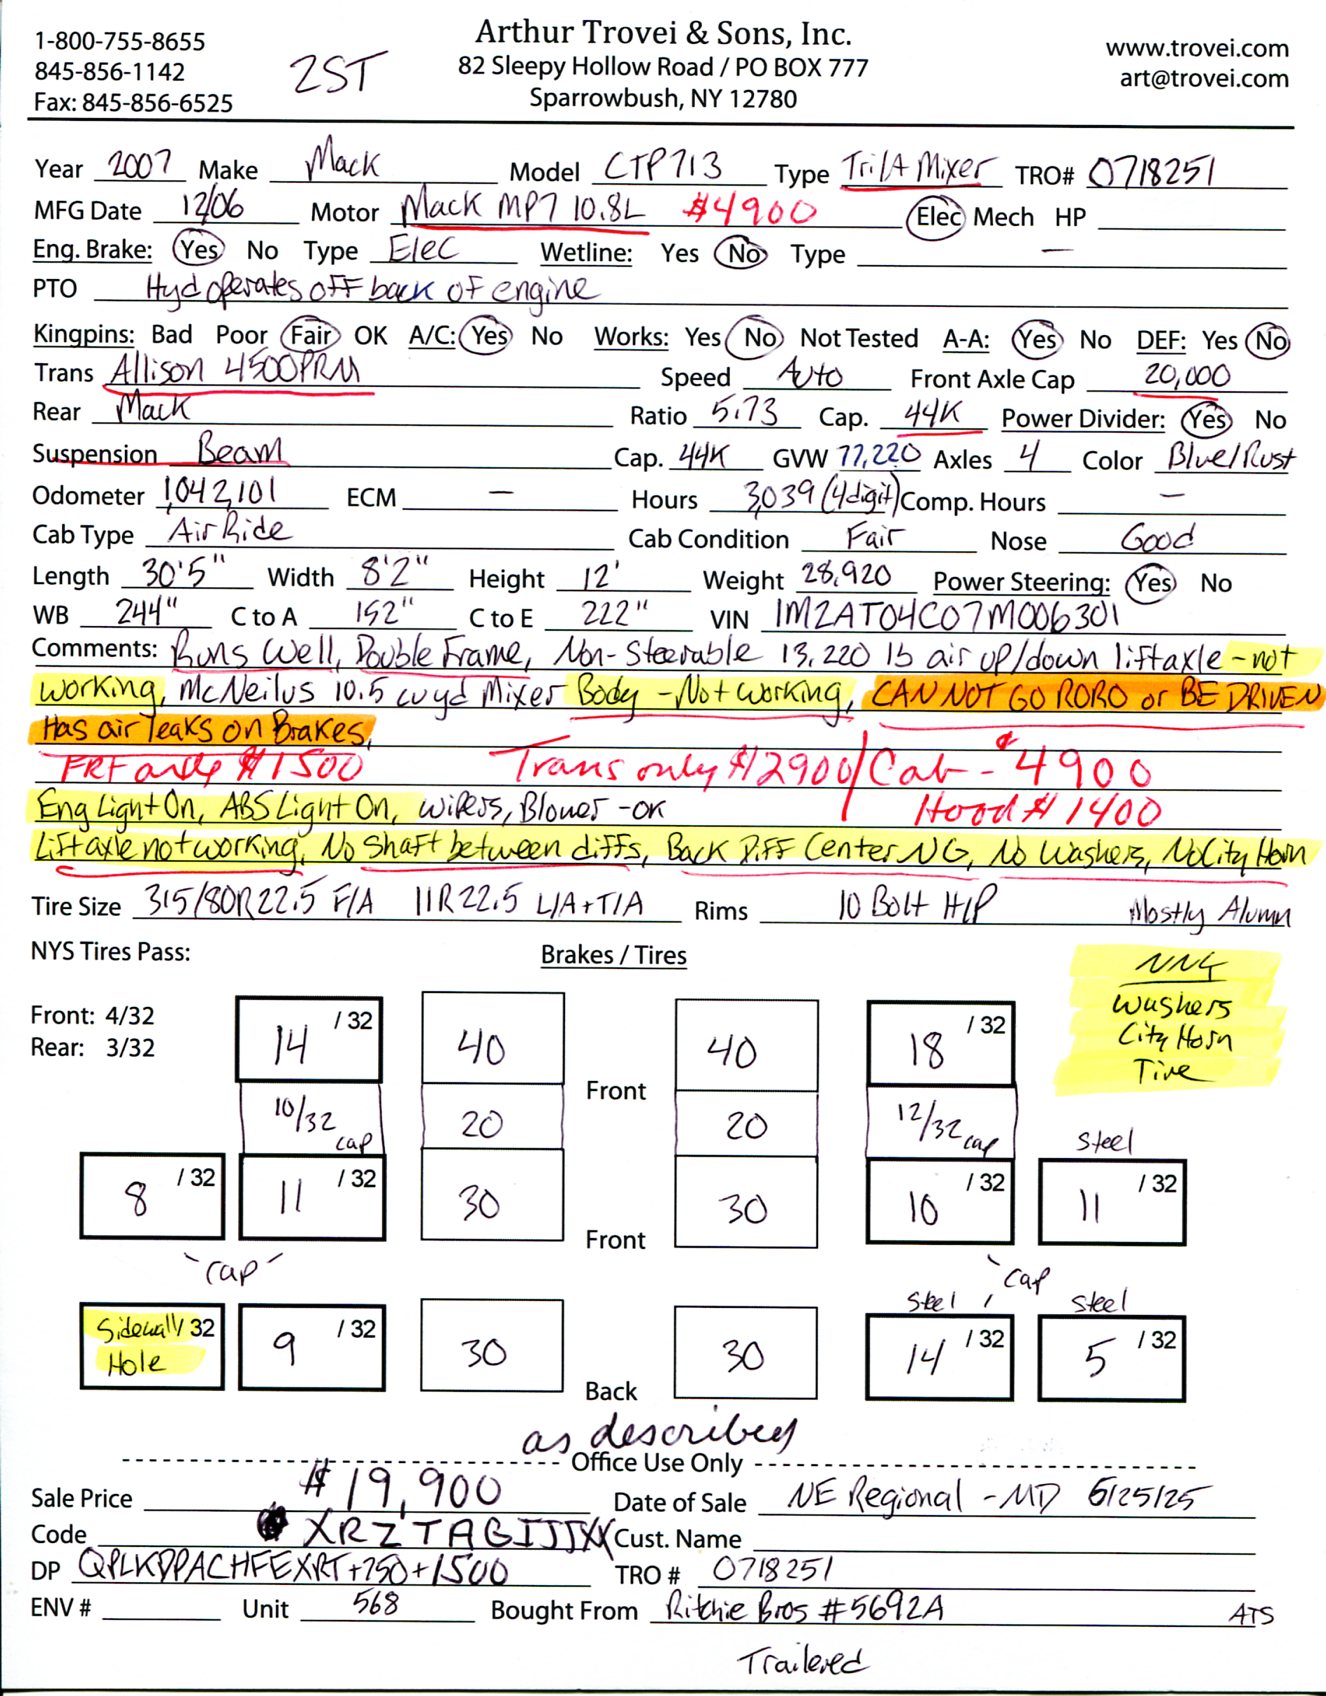 1-800-755-8655
845-856-1142
Fax: 845-856-6525
2ST
Arthur Trovei & Sons, Inc.
82 Sleepy Hollow Road / PO BOX 777
Sparrowbush, NY 12780
www.trovei.com
art@trovei.com
Year 2007 Make Mack Model CTP713 Type Tri/A Mixer TRO# 0718251
MFG Date 12/06 Motor Mack MP7 10.8L $4900 Elec Mech HP
Eng. Brake: Yes No Type Elec Wetline: Yes No Type —
PTO Hyd operates off back of engine
Kingpins: Bad Poor Fair OK A/C: Yes No Works: Yes No Not Tested A-A: Yes No DEF: Yes No
Trans Allison 4500PRM Speed Auto Front Axle Cap 20,000
Rear Mack Ratio 5.73 Cap. 44K Power Divider: Yes No
Suspension Beam Cap. 44K GVW 77,220 Axles 4 Color Blue/Rust
Odometer 1,042,101 ECM — Hours 3,039 (4digit) Comp. Hours —
Cab Type Air Ride Cab Condition Fair Nose Good
Length 30'5" Width 8'2" Height 12' Weight 28,920 Power Steering: Yes No
WB 244" C to A 152" C to E 222" VIN 1M2AT04C07M006301
Comments: Runs Well, Double Frame, Non-Steerable 13,220 lb air up/down liftaxle - not
working, McNeilus 10.5 cuyd Mixer Body - Not working, CAN NOT GO RORO or BE DRIVEN
Has air leaks on Brakes,
FRT axle $1500 Trans only $2900/ Cab - $4900
Hood $1400
Eng Light On, ABS Light On, Wipers, Blower - OK
Liftaxle not working, No Shaft between diffs, Back Diff Center NG, No Washers, No City Horn
Tire Size 315/80R22.5 F/A 11R22.5 L/A + T/A Rims 10 Bolt H/P Mostly Alumn
NYS Tires Pass:
Brakes / Tires
NNY
Washers
City Horn
Tire
Front: 4/32
Rear: 3/32
14 /32 40 40 18 /32
Front
10/32 cap 20 20 12/32 cap
Steel
8 /32 11 /32 30 30 10 /32 11 /32
Front
-cap- cap
Steel Steel
Sidewall/32 Hole 9 /32 30 30 14 /32 5 /32
Back
as described
Office Use Only
Sale Price $19,900 Date of Sale NE Regional - MD 6/25/25
Code XRZTAGIJJXX Cust. Name
DP QPLKDPACHFEXRT+750+1500 TRO # 0718251
ENV # Unit 568 Bought From Ritchie Bros #5692A ATS
Trailered